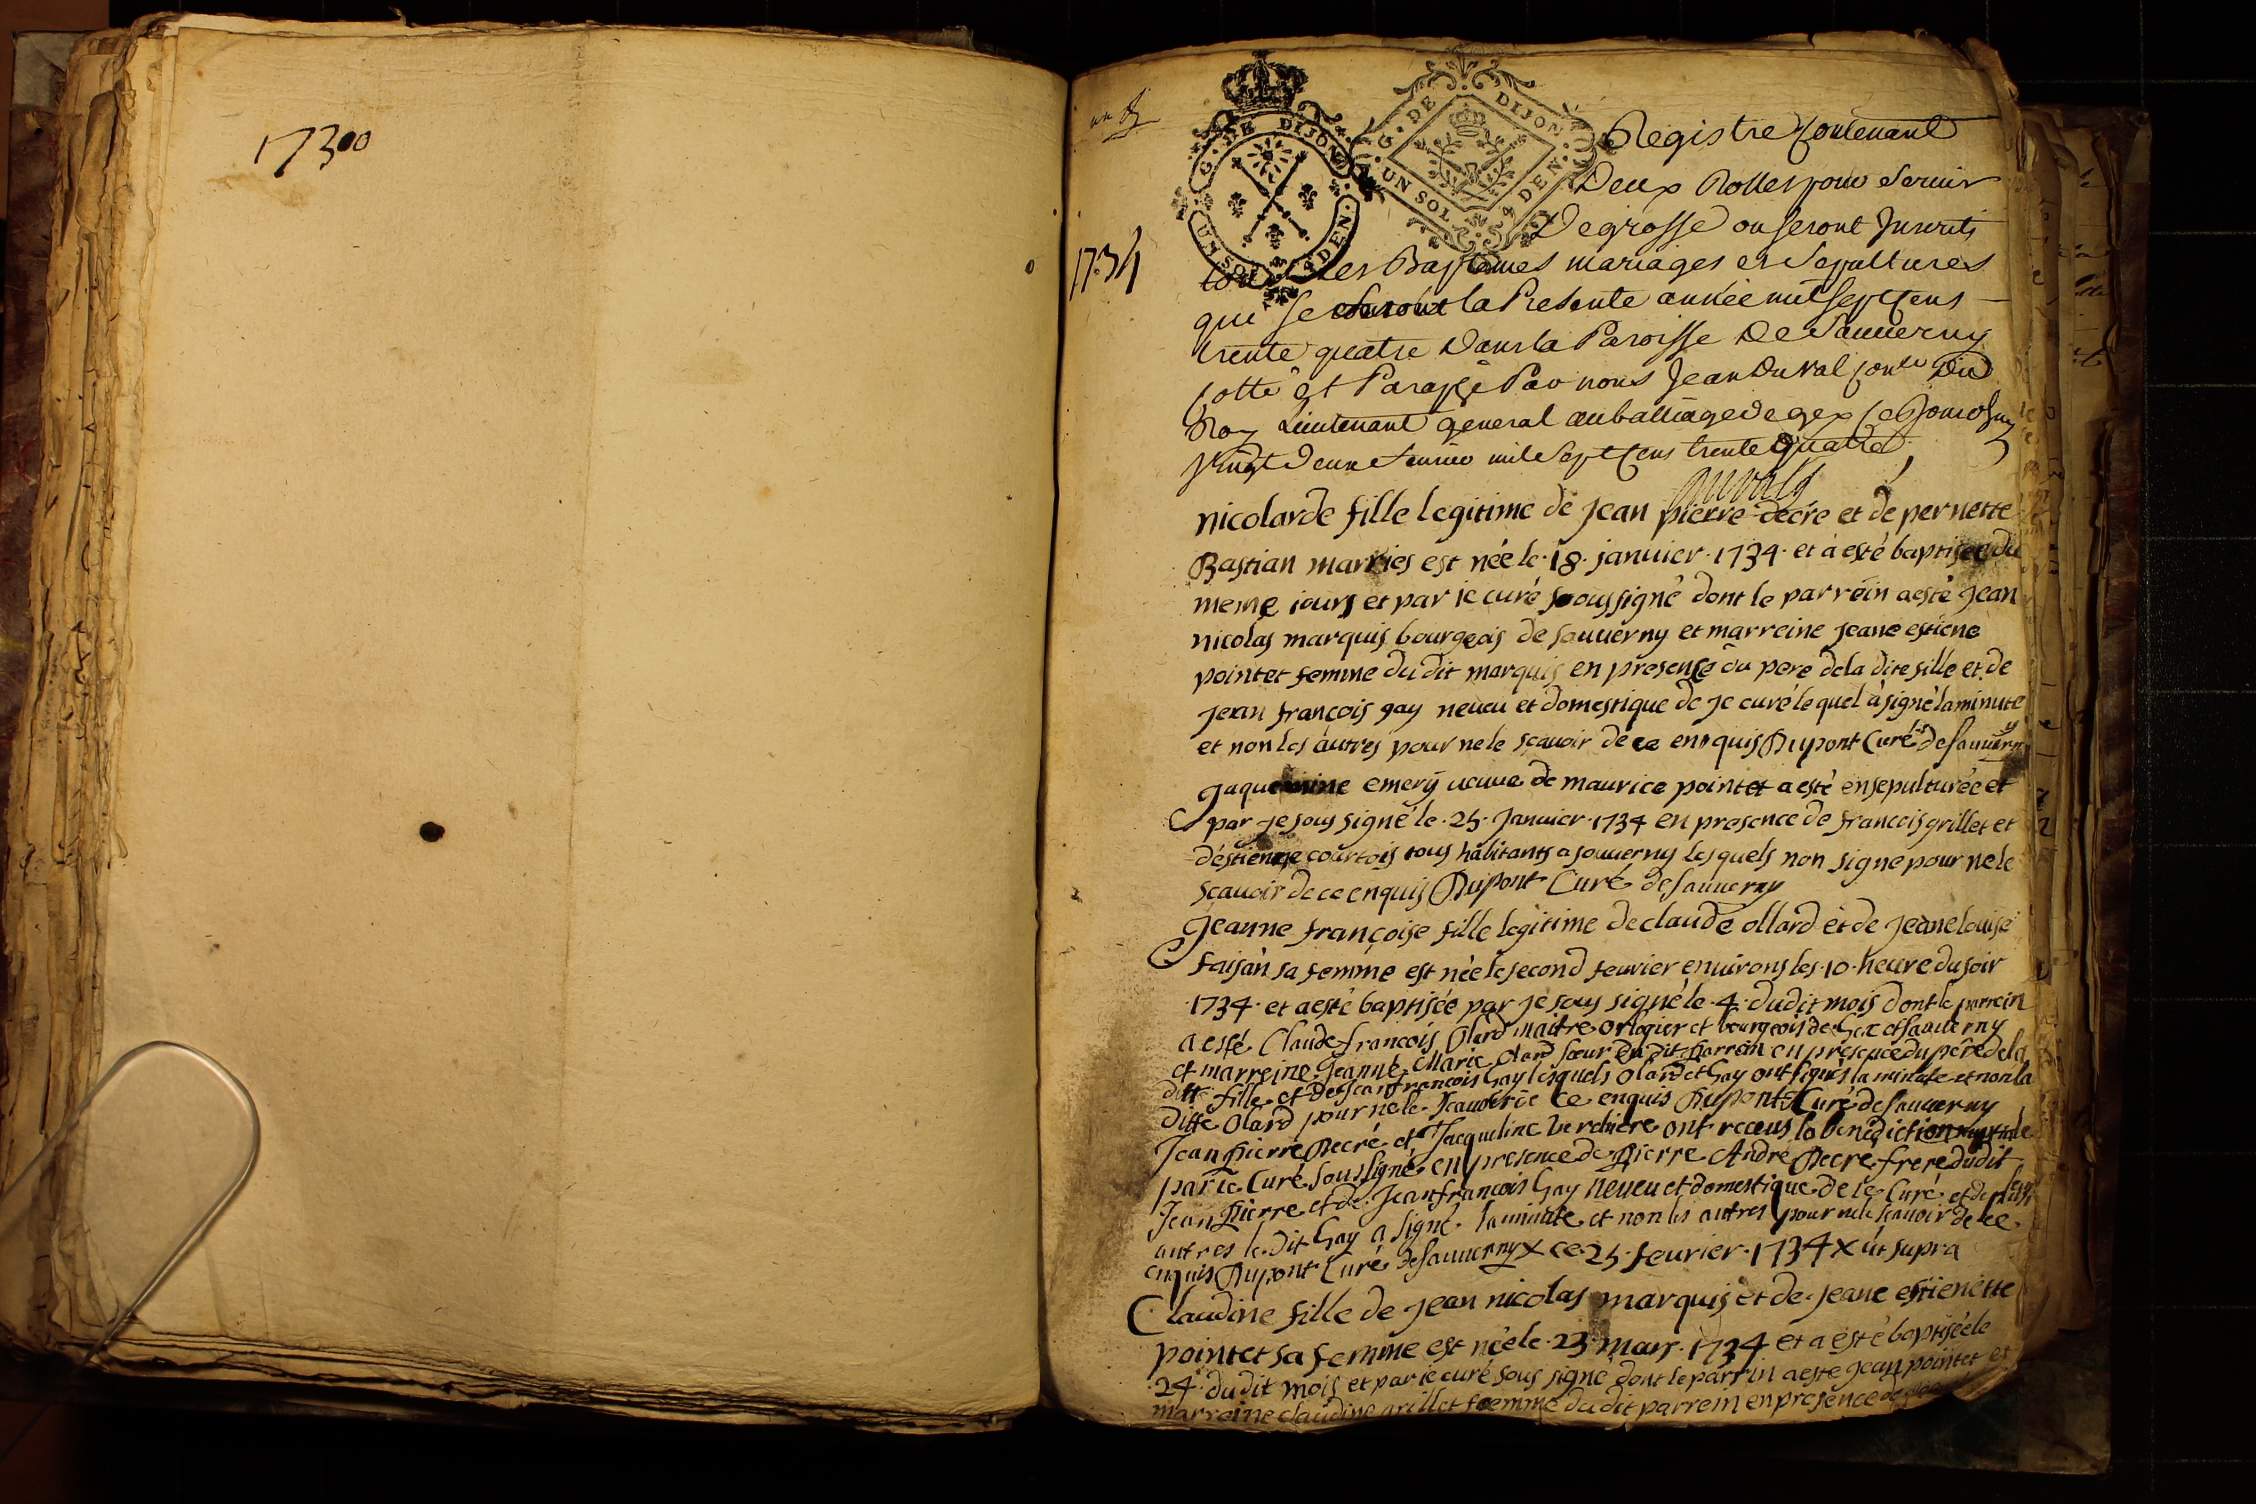 17300
1734
G. DE DIJON
UN SOL 4 DEN.
G. DE DIJON
UN SOL 4 DEN.
Registre Contenant
Deux Rolles pour Servir
De grosse ou seront Inscrits
les Baptemes mariages et Sepultures
qui se feront la Presente année mil sept Cens
trente quatre dans la Paroisse De Sauverny
Cotté et Paraffé Par nous Jean Duval Con.er Du
Roy Lieutenant general au balliage de gex Ce Jourdhuy
vingt deux mil Sept Cens trente quatre
Duval
nicolarde fille legitime de jean pierre decre et de pernette
Bastian marries est née le .18. januier .1734. et à esté baptisee du
meme iours et par ie curé soussigné dont le parrein a esté jean
nicolas marquis bourgeois de sauuerny et marreine jeane estiene
pointet femme du dit marquis en presense du pere de la dite fille et de
jean françois gay neueu et domestique de je curé le quel à signé la minute
et non les àutres pour ne le sçauoir de ce enquis Dupont Curé de sauuerny
jaquemine emery ueuue de maurice pointet a esté ensepulturée et
par je sous signé le .25. januier .1734 en presence de francois grillet et
déstienne courtois tous habitants a souuerny lesquels non signe pour ne le
scauoir de ce enquis Dupont Curé de sauuerny
jeanne françoise fille legitime de claude ollard et de jeane louise
faisàn sa femme est née le second feurier enuirons les .10. heure du soir
.1734. et a esté baptisée par je sous signé le .4. dudit mois dont le parrein
a esté Claude francois Olard maitre orlogier et bourgeois de Gex et sauuerny
et marreine Jeanne Marie Olard sœur du dit parrein en presence du pere de la
ditte fille et de Jean francois Gay lesquels Olard et Gay ont signés la minute et non la
ditte Olard pour ne le scauoir de ce enquis Dupont Curé de sauuerny
Jean Pierre Decré et Jacqueline Verchiere ont receus la benediction nuptiale
par ie Curé soussigné en presence de Pierre André Decre frere dudit
Jean Pierre et de Jean francois Gay neueu et domestique de ie Curé et de plusieurs
autres le dit Gay a signé la minute et non les autres pour ne le scauoir de ce
enquis Dupont Curé de sauuerny x ce .25. feurier .1734 x ut supra
Claudine fille de jean nicolas marquis et de jeane estienette
pointet sa femme est née le .23. mars .1734 et a esté baptisée le
.24. dudit mois et par ie curé sous signé dont le parrin a esté jean pointet et
marreine claudine grillet femme du dit parrein en presence de